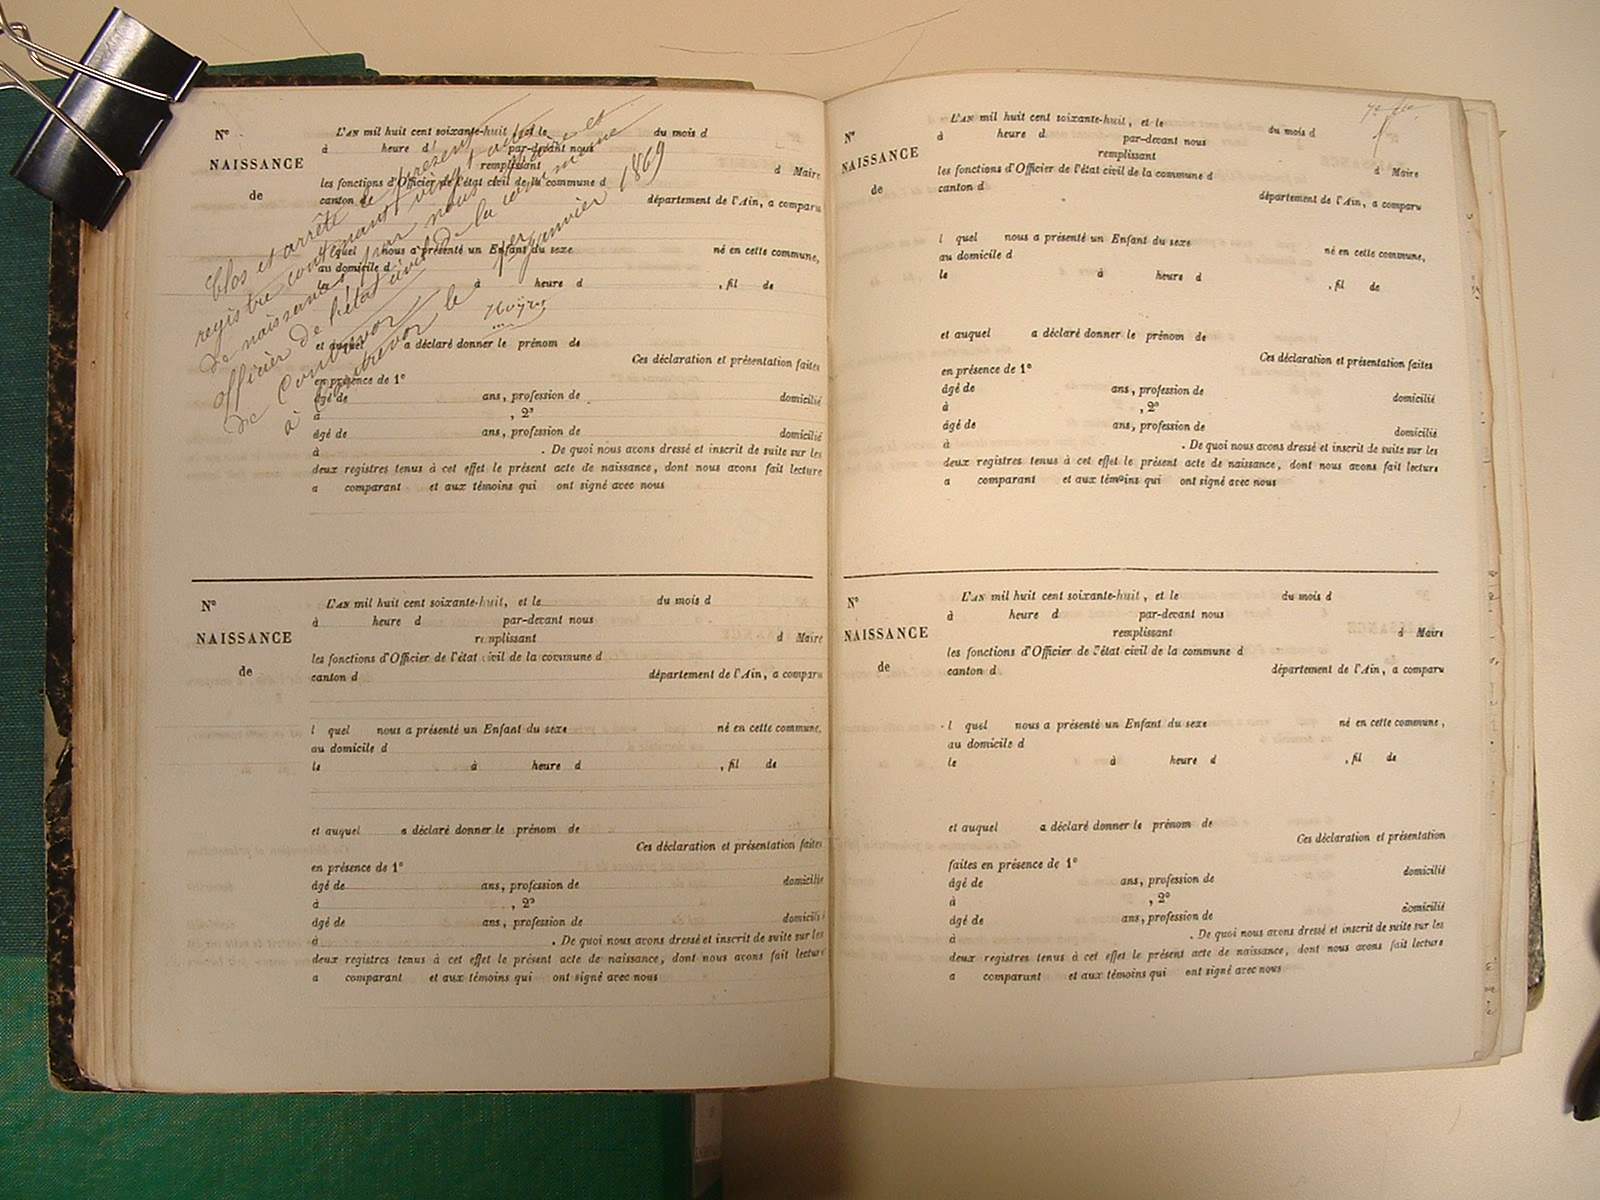 N° L'AN mil huit cent soixante-huit, et le du mois d
à heure d par-devant nous
NAISSANCE remplissant d Maire
de les fonctions d'Officier de l'état civil de la commune d
canton d département de l'Ain, a comparu
l quel nous a présenté un Enfant du sexe né en cette commune,
au domicile d
à heure d , fil de
et auquel a déclaré donner le prénom de
Ces déclaration et présentation faites
en présence de 1°
âgé de ans, profession de domicilié
à , 2°
âgé de ans, profession de domicilié
à . De quoi nous avons dressé et inscrit de suite sur les
deux registres tenus à cet effet le présent acte de naissance, dont nous avons fait lecture
a comparant et aux témoins qui ont signé avec nous
Clos et arrêté le présent
registre contenant vingt
de naissances par nous et
officier de l'état civil de la commune
de Contrevoz
à Contrevoz le 1er janvier 1869
N° L'AN mil huit cent soixante-huit, et le du mois d
à heure d par-devant nous
NAISSANCE remplissant d Maire
de les fonctions d'Officier de l'état civil de la commune d
canton d département de l'Ain, a comparu
l quel nous a présenté un Enfant du sexe né en cette commune,
au domicile d
le à heure d , fil de
et auquel a déclaré donner le prénom de
Ces déclaration et présentation faites
en présence de 1°
âgé de ans, profession de domicilié
à , 2°
âgé de ans, profession de domicilié
à . De quoi nous avons dressé et inscrit de suite sur les
deux registres tenus à cet effet le présent acte de naissance, dont nous avons fait lecture
a comparant et aux témoins qui ont signé avec nous
N° L'AN mil huit cent soixante-huit, et le du mois d
à heure d par-devant nous
NAISSANCE remplissant d Maire
de les fonctions d'Officier de l'état civil de la commune d
canton d département de l'Ain, a comparu
l quel nous a présenté un Enfant du sexe né en cette commune,
au domicile d
le à heure d , fil de
et auquel a déclaré donner le prénom de
Ces déclaration et présentation faites
en présence de 1°
âgé de ans, profession de domicilié
à , 2°
âgé de ans, profession de domicilié
à . De quoi nous avons dressé et inscrit de suite sur les
deux registres tenus à cet effet le présent acte de naissance, dont nous avons fait lecture
a comparant et aux témoins qui ont signé avec nous
N° L'AN mil huit cent soixante-huit, et le du mois d
à heure d par-devant nous
NAISSANCE remplissant d Maire
de les fonctions d'Officier de l'état civil de la commune d
canton d département de l'Ain, a comparu
l quel nous a présenté un Enfant du sexe né en cette commune,
au domicile d
le à heure d , fil de
et auquel a déclaré donner le prénom de
Ces déclaration et présentation
faites en présence de 1°
âgé de ans, profession de domicilié
à , 2°
âgé de ans, profession de domicilié
à . De quoi nous avons dressé et inscrit de suite sur les
deux registres tenus à cet effet le présent acte de naissance, dont nous avons fait lecture
a comparant et aux témoins qui ont signé avec nous